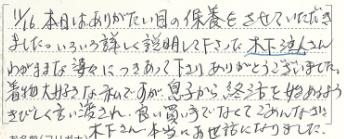 11/16.本日はありがたい目の保養をさせていただき
ました。いろいろ詳しく説明して下さった 木下達人さん
わがままな婆々につきあって下さりありがとうございました。
着物大好きな私ですが息子から終活を始めるよう
きびしく言い渡され、良い買い手でなくてごめんなさい
木下さん本当にお世話になりました。